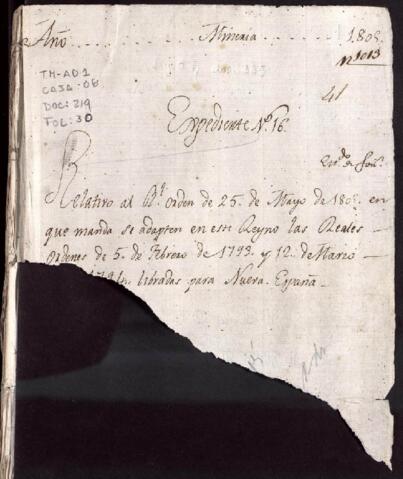 Año . . . . . . Mineria . . . . . 1808.
nº 1013
TM-AD1
CAJA-08
DOC: 219
FOL: 30
41
Expediente Nº 16.
Relativo al Rl. orden de 25. de Mayo de 1808. en
que manda se adapten en este Reyno las Reales
ordenes de 5. de Febrero de 1793. y 12. de Marzo
libradas para Nueva España